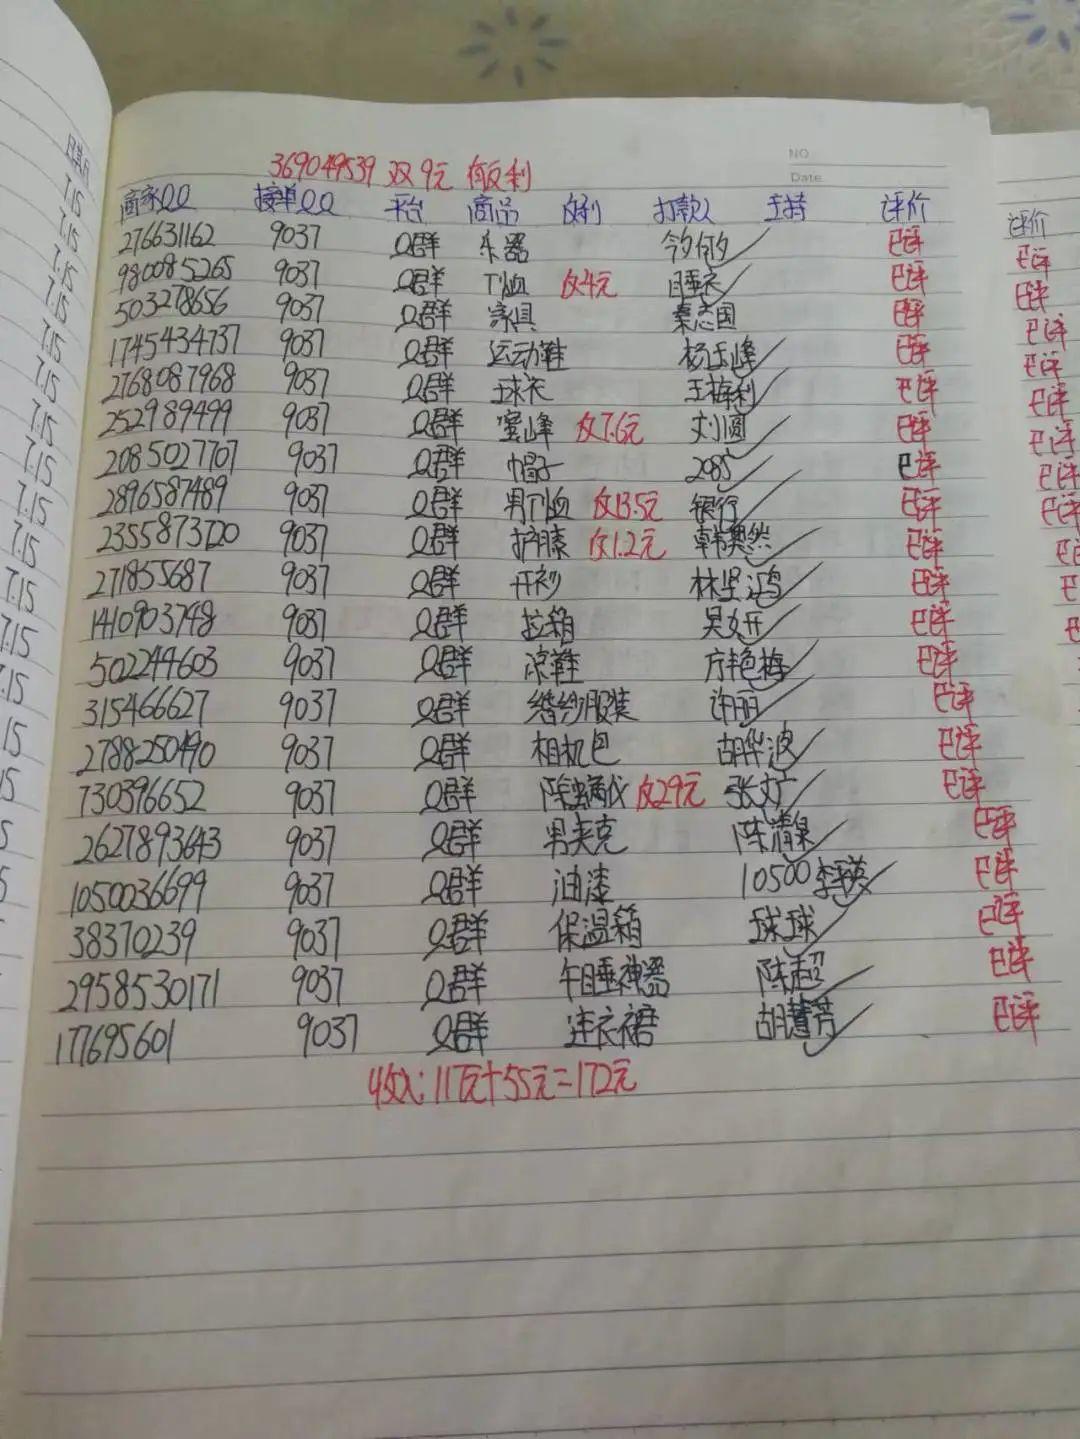 NO
369049539 双9元 有返利
Date
商家QQ 接单QQ 平台 商品 反利 打款人 主持 评价
276631162 9037 Q群 乐器 今夕何夕 ✓ 已评
980085265 9037 Q群 T恤 反4元 睡衣 ✓ 已评
503278656 9037 Q群 家具 秦志国 已评
1745434737 9037 Q群 运动鞋 杨玉峰 ✓ 已评
2768087968 9037 Q群 球衣 王梅利 ✓ 已评
252989499 9037 Q群 蜜蜂 反7.6元 刘圆 ✓ 已评
2085027707 9037 Q群 帽子 2085 ✓ 已评
2896587489 9037 Q群 男T恤 反13.5元 银行 ✓ 已评
2355873720 9037 Q群 护膝 反1.2元 韩 然 ✓ 已评
271855687 9037 Q群 开衫 林坚鸿 ✓ 已评
1410903748 9037 Q群 拉箱 吴文开 ✓ 已评
502244603 9037 Q群 凉鞋 方艳梅 ✓ 已评
315466627 9037 Q群 婚纱服装 许丽 ✓ 已评
2788250490 9037 Q群 相机包 胡华波 ✓ 已评
730396652 9037 Q群 除螨仪 反29元 张文广 ✓ 已评
2627893643 9037 Q群 男夹克 陈清泉 ✓ 已评
1050036699 9037 Q群 油漆 10500 李英 ✓ 已评
38370239 9037 Q群 保温箱 球球 ✓ 已评
2958530171 9037 Q群 午睡神器 陈超 ✓ 已评
177695601 9037 Q群 连衣裙 胡慧芳 ✓ 已评
收入: 117元+55元=172元
日期
7.15
7.15
7.15
7.15
7.15
7.15
7.15
7.15
7.15
7.15
7.15
7.15
7.15
评价
已评
已评
已评
已评
已评
已评
已评
已评
已评
已评